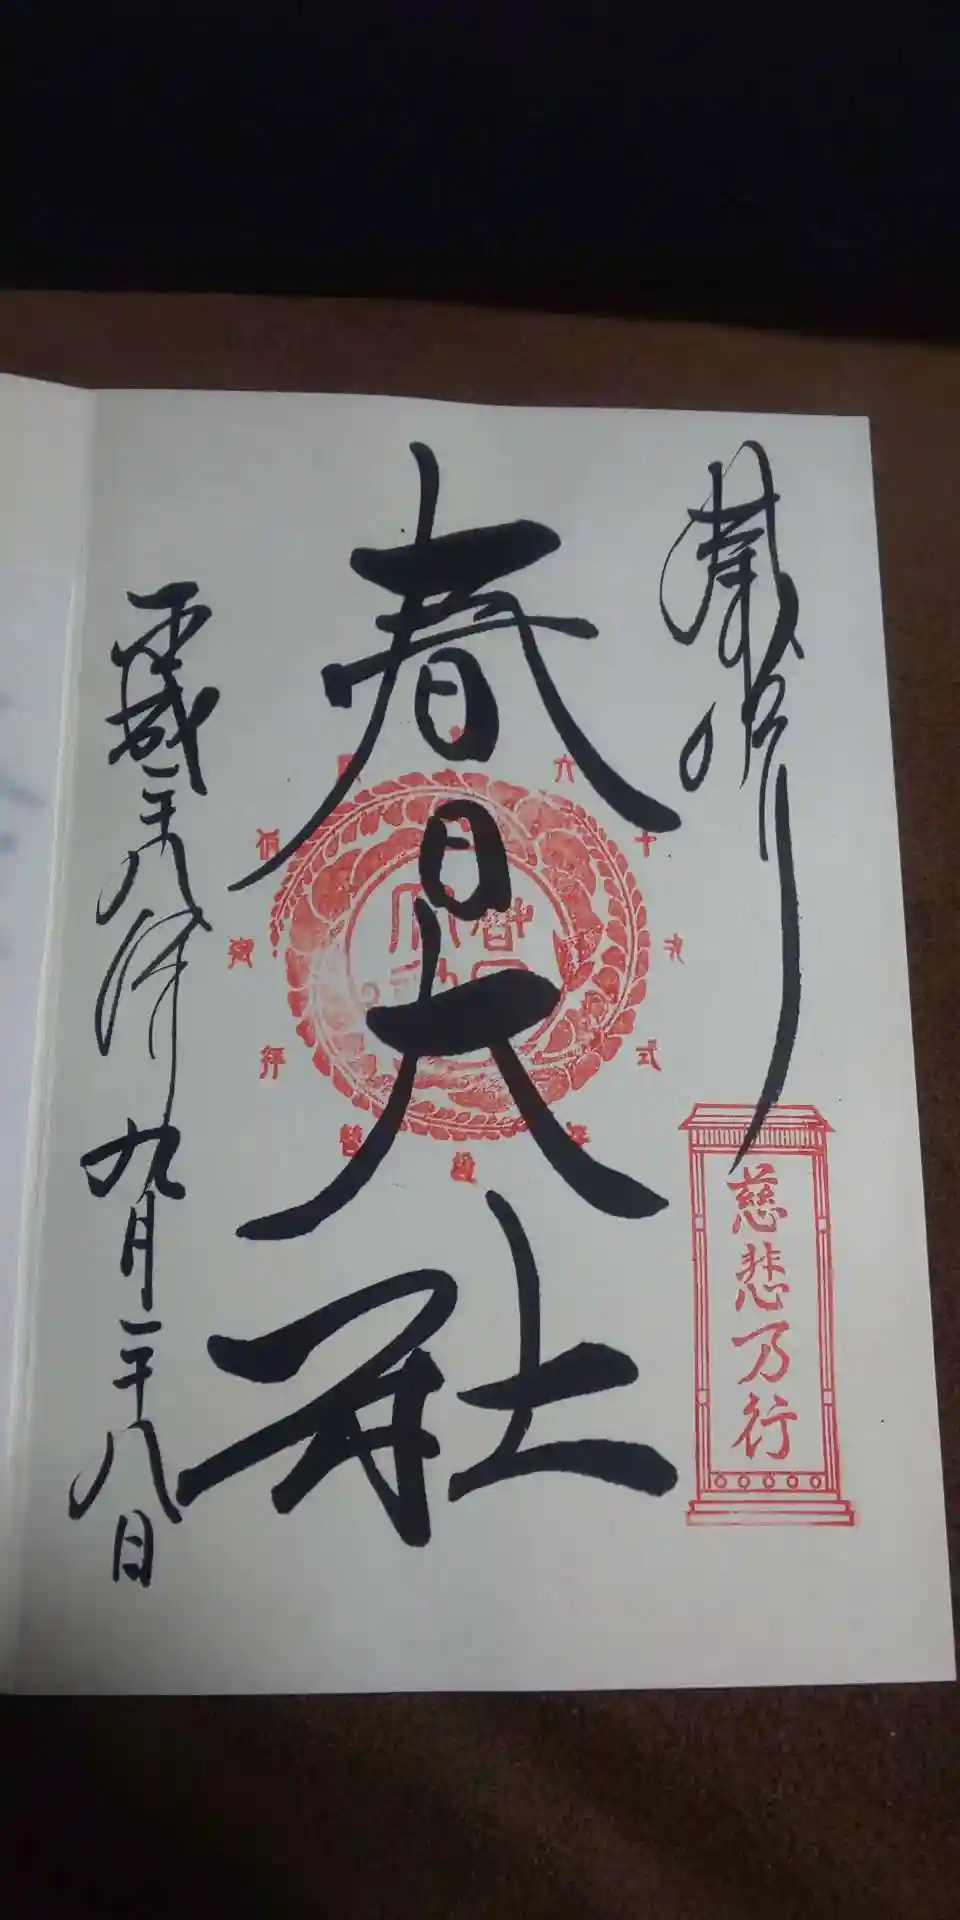 奉拝
慈悲乃行
春日大社
平成二十八年九月二十八日